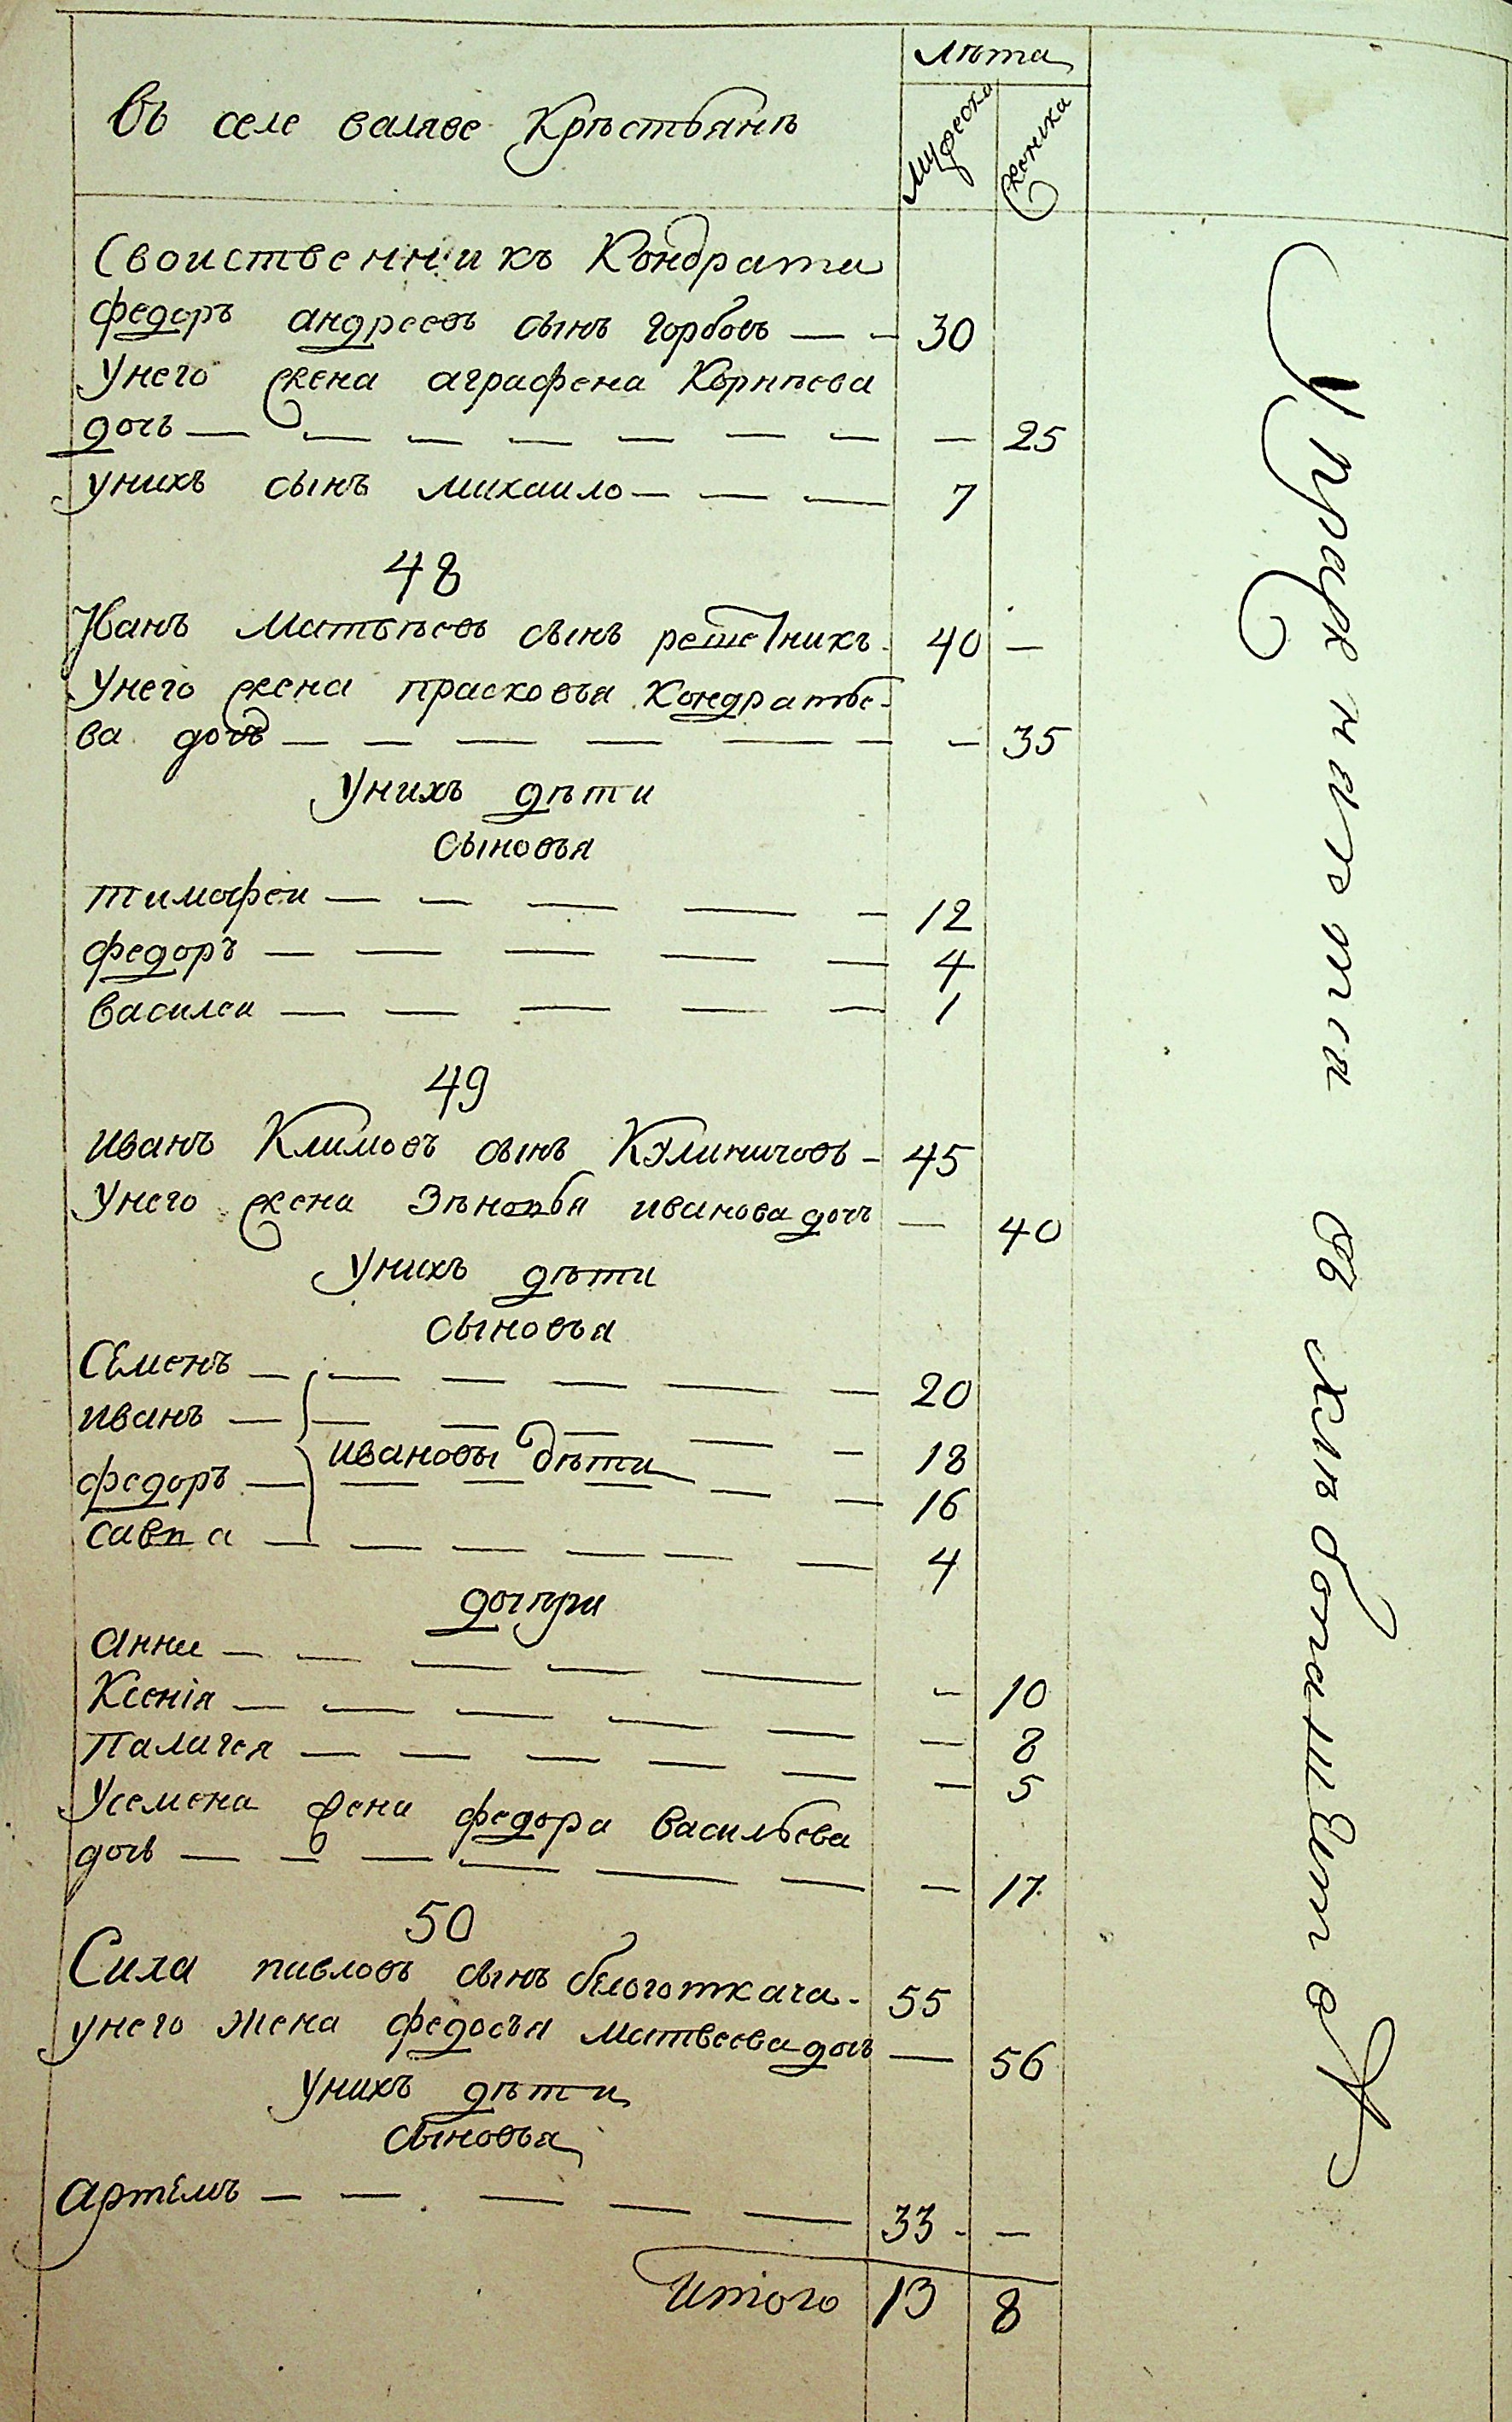 Въ селе валяве Крѣстьянъ
лѣта
мужеска
женска
Своиственникъ Кондрата
федоръ андреевъ сынъ горбовъ — — 30
Унего жена аграфена Корнѣева
дочъ — — — — — — — — 25
унихъ сынъ михаило — — — 7
48
Иванъ Матвѣевъ сынъ решетникъ 40 —
Унего жена прасковъя Кондратье-
ва дочь — — — — — — — 35
Унихъ дѣти
сыновъя
тимофеи — — — — — 12
федоръ — — — — — 4
василеи — — — — — 1
49
иванъ Климовъ сынъ Калиничовъ — 45
Унего жена Зѣновья иванова дочъ — 40
Унихъ дѣти
сыновъя
Семенъ — — — — — — 20
иванъ — — — — — — 18
ивановы дѣти
федоръ — — — — — — 16
савва — — — — — — 4
дочери
анна — — — — — — 10
Ксенія — — — — — — — 8
Палагея — — — — — — — 5
Усемена жена федора Васильева
дочь — — — — — — — 17
50
Сила павловъ сынъ белоготкача 55
унего жена федосъя матвеева дочъ — 56
Унихъ дѣти
сыновъя
артемъ — — — — — 33 —
Итого 13 8
Упражняются въ хлебопашестве